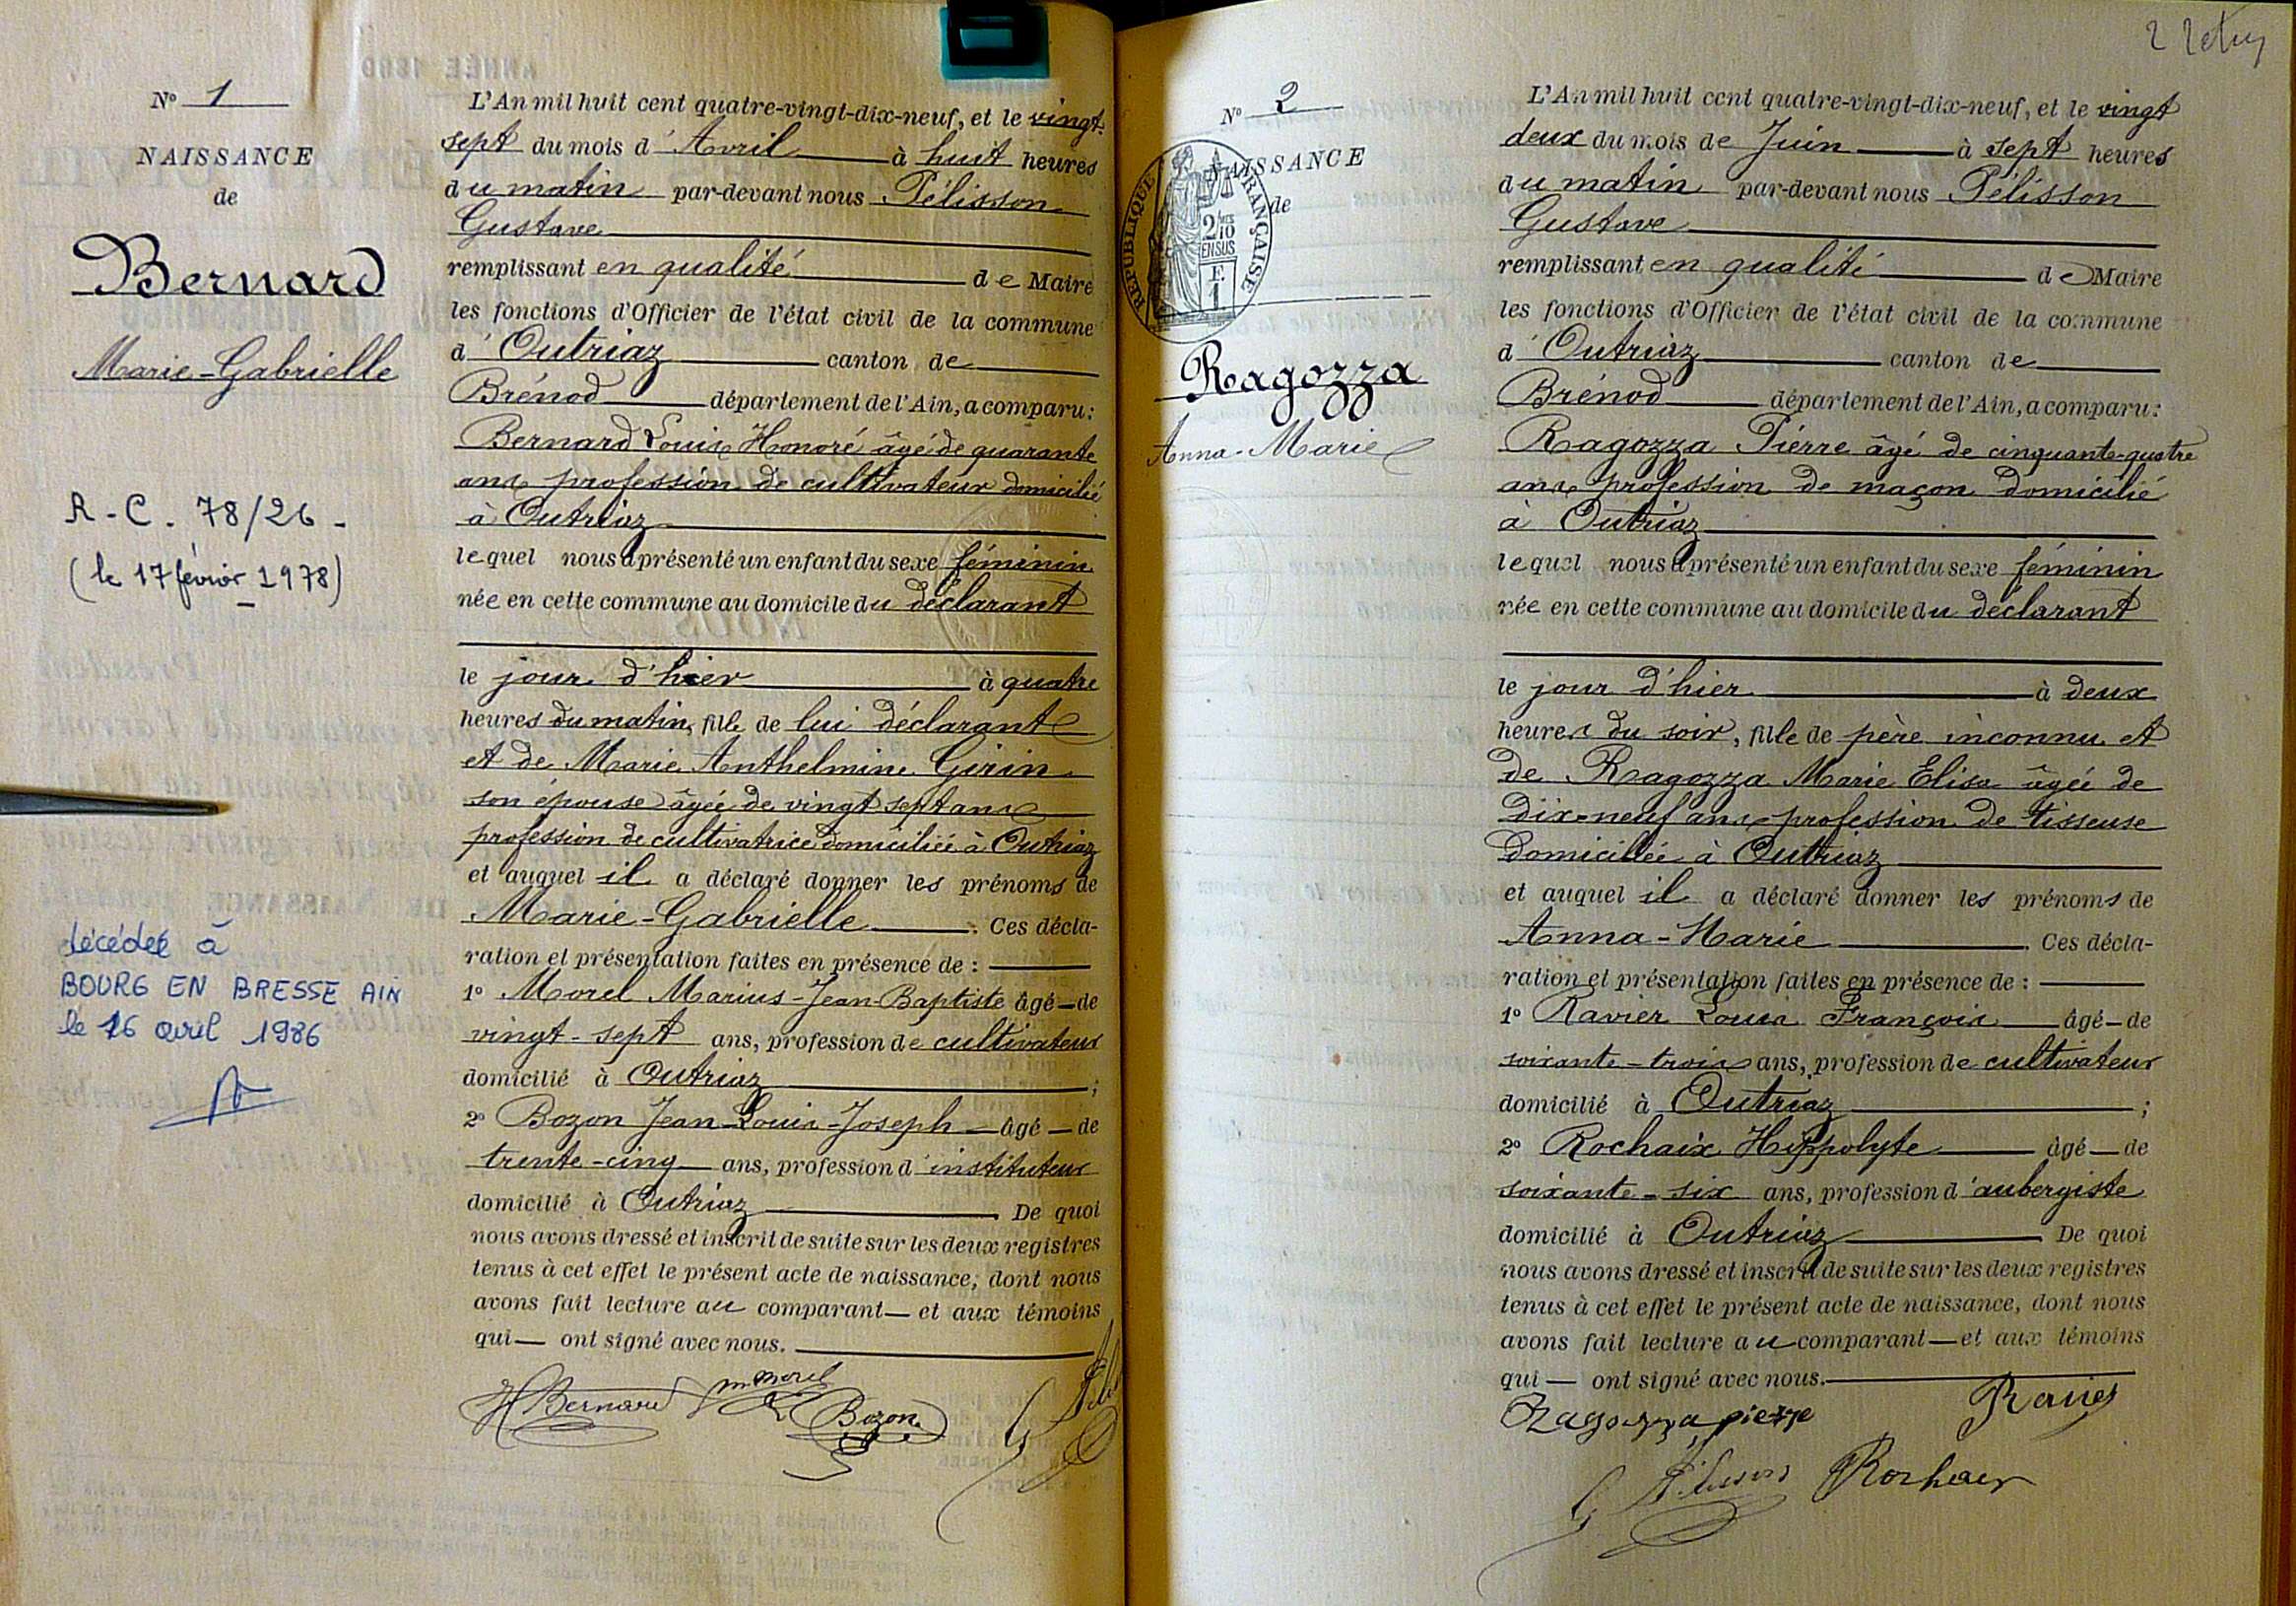 N° 1
NAISSANCE
de
Bernard
Marie-Gabrielle
R.C. 78/26 -
(le 17 février 1978)
décédée à
BOURG EN BRESSE AIN
le 16 avril 1986
L'An mil huit cent quatre-vingt-dix-neuf, et le vingt-
sept du mois d'Avril à huit heures
du matin par-devant nous Pélisson
Gustave
remplissant en qualité de Maire
les fonctions d'Officier de l'état civil de la commune
d'Outriaz canton de
Brénod département de l'Ain, a comparu:
Bernard Louis Honoré âgé de quarante
ans profession de cultivateur domicilié
à Outriaz
lequel nous a présenté un enfant du sexe féminin
née en cette commune au domicile du déclarant
le jour d'hier à quatre
heures du matin, fille de lui déclarant
et de Marie Anthelmine Girin
son épouse âgée de vingt sept ans
profession de cultivatrice domiciliée à Outriaz
et auquel il a déclaré donner les prénoms de
Marie-Gabrielle. Ces décla-
ration et présentation faites en présence de :
1° Morel Marius-Jean-Baptiste âgé - de
vingt-sept ans, profession de cultivateur
domicilié à Outriaz ;
2° Bozon Jean-Louis-Joseph - âgé - de
trente-cinq ans, profession d'instituteur
domicilié à Outriaz. De quoi
nous avons dressé et inscrit de suite sur les deux registres
tenus à cet effet le présent acte de naissance, dont nous
avons fait lecture au comparant - et aux témoins
qui - ont signé avec nous.
H Bernard m morel
Bozon
N° 2
NAISSANCE
de
RÉPUBLIQUE FRANÇAISE
2/10
EN SUS
F.
1
Ragozza
Anna-Marie
2
L'An mil huit cent quatre-vingt-dix-neuf, et le vingt
deux du mois de Juin à sept heures
du matin par-devant nous Pélisson
Gustave
remplissant en qualité de Maire
les fonctions d'Officier de l'état civil de la commune
d'Outriaz canton de
Brénod département de l'Ain, a comparu:
Ragozza Pierre âgé de cinquante-quatre
ans profession de maçon domicilié
à Outriaz
lequel nous a présenté un enfant du sexe féminin
née en cette commune au domicile du déclarant
le jour d'hier à deux
heures du soir, fille de père inconnu et
de Ragozza Marie Elisa âgée de
dix-neuf ans profession de tisseuse
domiciliée à Outriaz
et auquel il a déclaré donner les prénoms de
Anna-Marie. Ces décla-
ration et présentation faites en présence de :
1° Ravier Louis François âgé - de
soixante-trois ans, profession de cultivateur
domicilié à Outriaz ;
2° Rochaix Hippolyte âgé - de
soixante-six ans, profession d'aubergiste
domicilié à Outriaz. De quoi
nous avons dressé et inscrit de suite sur les deux registres
tenus à cet effet le présent acte de naissance, dont nous
avons fait lecture au comparant - et aux témoins
qui - ont signé avec nous.
Ragozza pierre Ravier
G Pélisson Rochaix